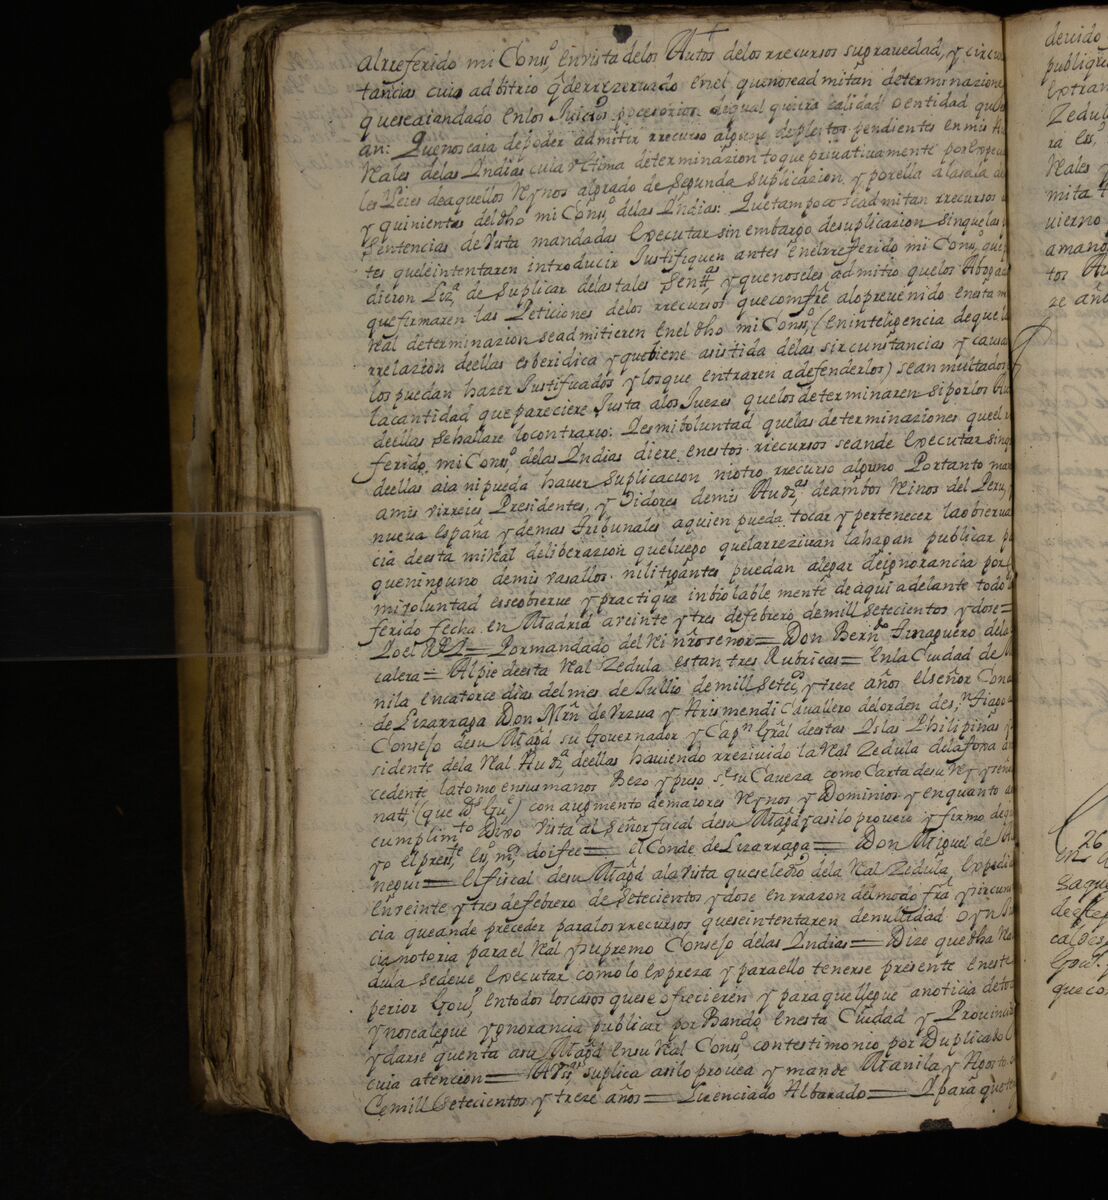 alrreferido mi Conss.º en vista de los Autos de los rrecursos su gravedad, y circuns
tancias cuio adbitrio q̃de rrezervado en el que no sead mitan determinazione
que se aiandado en los Juicios posesorios de qual quiera calidad o entidad que
an: Que no se aia de poder admitir rrecurso alguno de pleitos pendientes en mis
Reales de las Yndias cuia vltima determinazion toque privativamente por expe
les Leies de aquellos Rynos al grado de segunda suplicazion, y por ella a la sala de
y quinientas del dho mi Cons.º de las Yndias: Que tampoco sead mitan rrecursos
Sentencias de Vista mandadas executar sin embargo de suplicazion sin que las
tes que le intentaren introducir Justifiquen antes en el rreferido mi Cons.º que
dieron Liz.ª de Suplicar de las tales Sent.as y que no se les admitio que los Abogad
que firmaren las Peticiones de los rrecursos que comfr̃e alo prevenido en esta m
Real determinazion se admitieren en el dho mi Cons.º (en inteligencia de que la
rrelazion de ellas es beridica y que biene asistida de las sircunstancias y causas
los puedan hazer Justificados y los que entraren a defenderlos) sean multados
la cantidad que pareciere Justa a los Juezes que los determinaren si por los
de ellas se hallare lo contrario: Y es mi boluntad que las determinaziones que el
ferido mi Cons.º de las Yndias diere en estos rrecursos se an de executar sin
de ellas aia ni pueda haver Suplicacion ni otro rrecurso alguno Por tanto man
a mis virreies Presidentes, y Oidores de mis Aud.as de ambos Reinos del Peru, y
nueva españa y demas Tribunales a quien pueda tocar y pertenecer la observa
cia de esta mi Real deliberazion que luego que la rrezivan la hagan publicar p
que ninguno de mis vasallos ni litigantes puedan alegar de ignorancia por
mi voluntad es se observe y practique inbiolable mente de aqui adelante todo
ferido fecha en Madrid a veinte y tres de febrero de mill setecientos y dose=
Yo el Rey= Por mandado del Ri nr̃o señor= Don Bern.do Tinaguero de la
calera= Al pie de esta Real Zedula estan tres Rubricas= En la Ciudad de Ma
nila en catorce dias del mes de Jullio de mill setec.os y treze años el señor Con
de Lizarraga Don Mr̃n de Vrzua y Arismendi Cavallero del orden de s.n Tiago
Consejo de su Mag.d su Governador y Cap.n Gr̃al de estas Yslas Philipinas y
sidente de la Real Aud.ª de ellas haviendo rrezivido la Real Zedula de la foxa an
cedente la tomo en sus manos Bezo y puso s.e su Caveza como Carta de su Ry y señ
nat.l (que D.s G.e) con augmento de maiores Rynos y Dominios y en quanto a
cumplim.to Dixo Vista al Señor fiscal de su Mag.d y asi lo proveio y firmo de
yo el pres.te es.no m.r doi fee= el Conde de Lizarraga= Don Miguel de
negui= El fiscal de su Mag.d a la Vista que se le dio de la Real Zedula Expedi
en veinte y tres de febrero de Setecientos y dose en rrazon del modo fr̃a y circuns
cia que an de preceder para los rrecursos que se intentaren de nulidad o yn
cia notoria para el Real y supremo Consejo de las Yndias= Dize que dha Rea
dula se deve executar como lo expreza y para ello tenerse presente en este
perior Gov.º en todos los casos que se ofrecieren y para que llegue a noticia de to
y no se alegue ygnorancia publicar por Bando en esta Ciudad y Provincia
y darse quenta a su Mag.d en su Real Cons.º con testimonio por Duplicado
cuia atencion= A V.S. suplica asi lo provea y mande Manila y Agosto
de mill Setecientos y treze años= Licenciado Albarado= Y para que
devido
publiqu
extran
Zedul
ra es
Reales y
mita
vierno
amano
tos Au
ze año
26